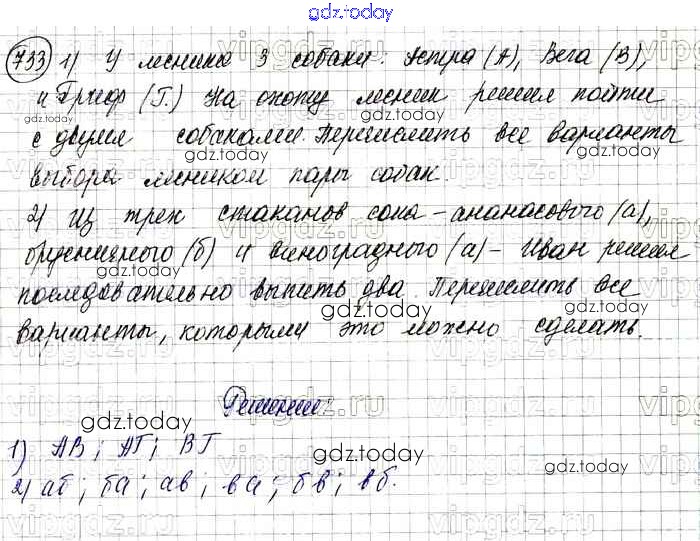 gdz.today
733 1) У лесника 3 собаки: Астра (А), Вега (В),
и Гриф (Г.) На охоту лесник решил пойти
с двумя собаками. Перечислить все варианты
gdz.today gdz.today
выбора лесником пары собак.
2) из трех стаканов сока - ананасового (а),
брусничного (б) и виноградного (а) - Иван решил
последовательно выпить два Перечислить все
gdz.today gdz.today
варианты, которыми это можно сделать.
Решение:
gdz.today gdz.today
1) АВ; АГ; ВГ
gdz.today gdz.today
2) аб; ба; ав; ва; бв; вб.
vipgdz.ru vipgdz.ru